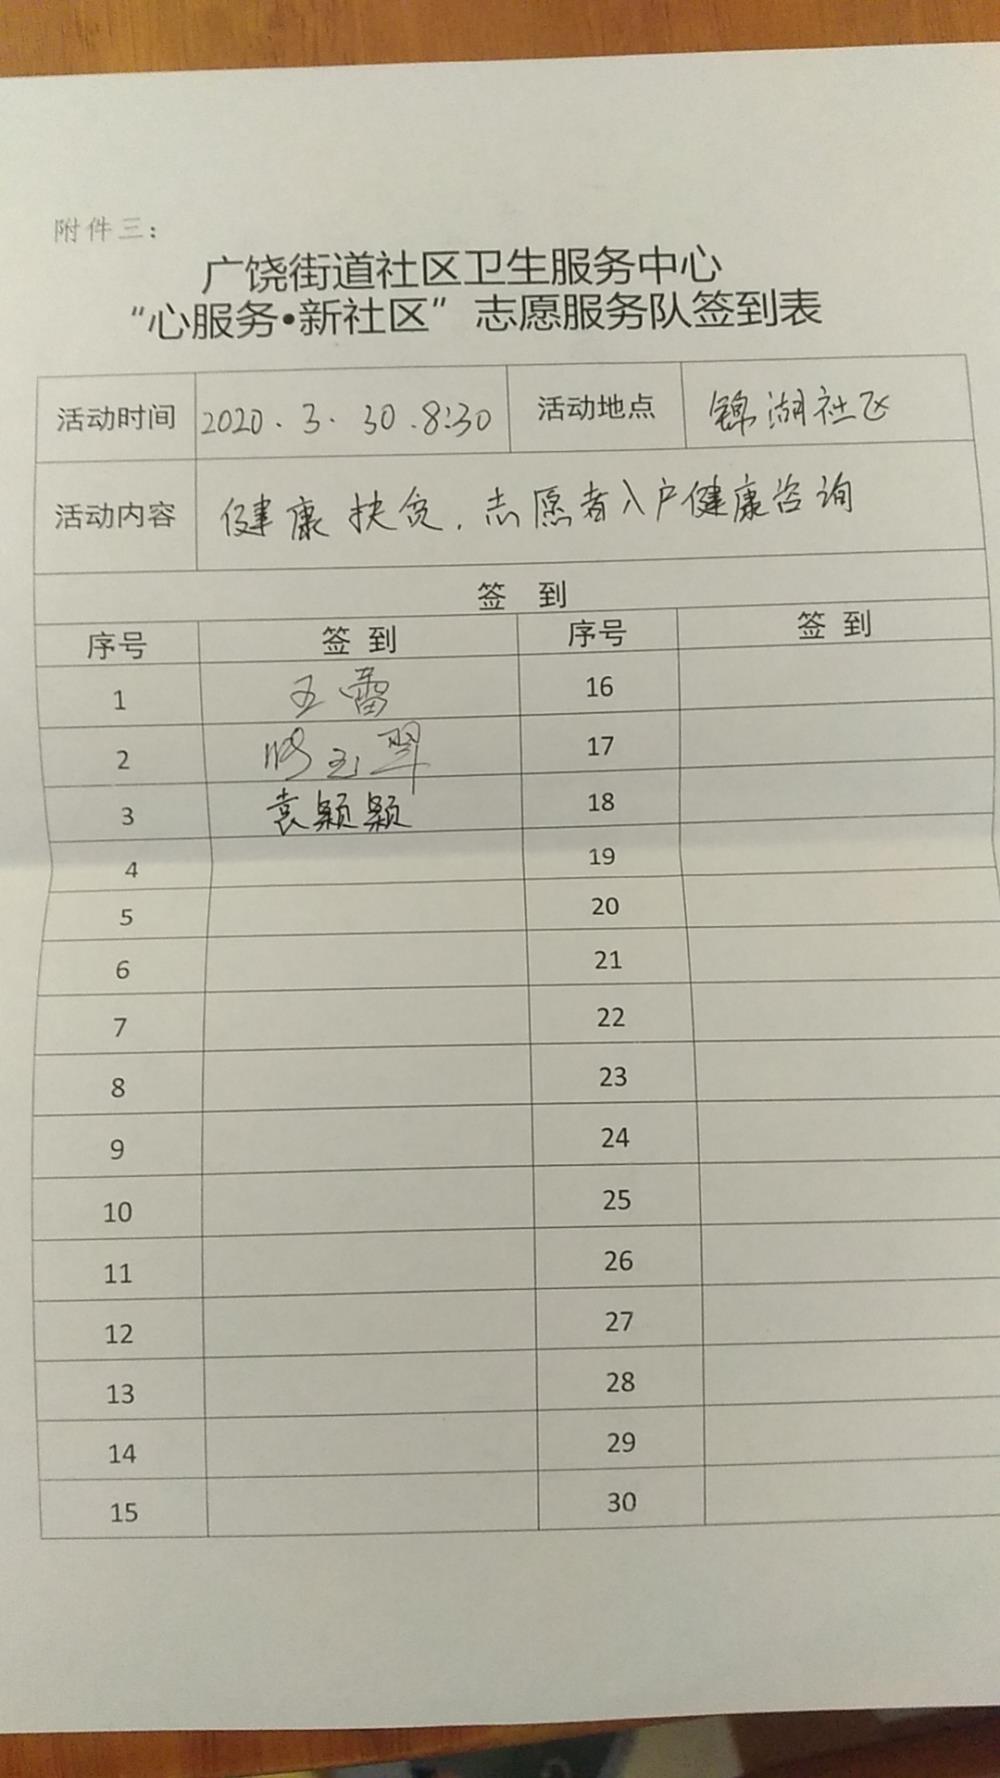 附件三：
广饶街道社区卫生服务中心
“心服务•新社区”志愿服务队签到表
活动时间 2020.3.30.8:30 活动地点 锦湖社区
活动内容 健康扶贫.志愿者入户健康咨询
签 到
序号 签 到 序号 签 到
1 王雷 16
2 玉翠 17
3 袁颖颖 18
4 19
5 20
6 21
7 22
8 23
9 24
10 25
11 26
12 27
13 28
14 29
15 30